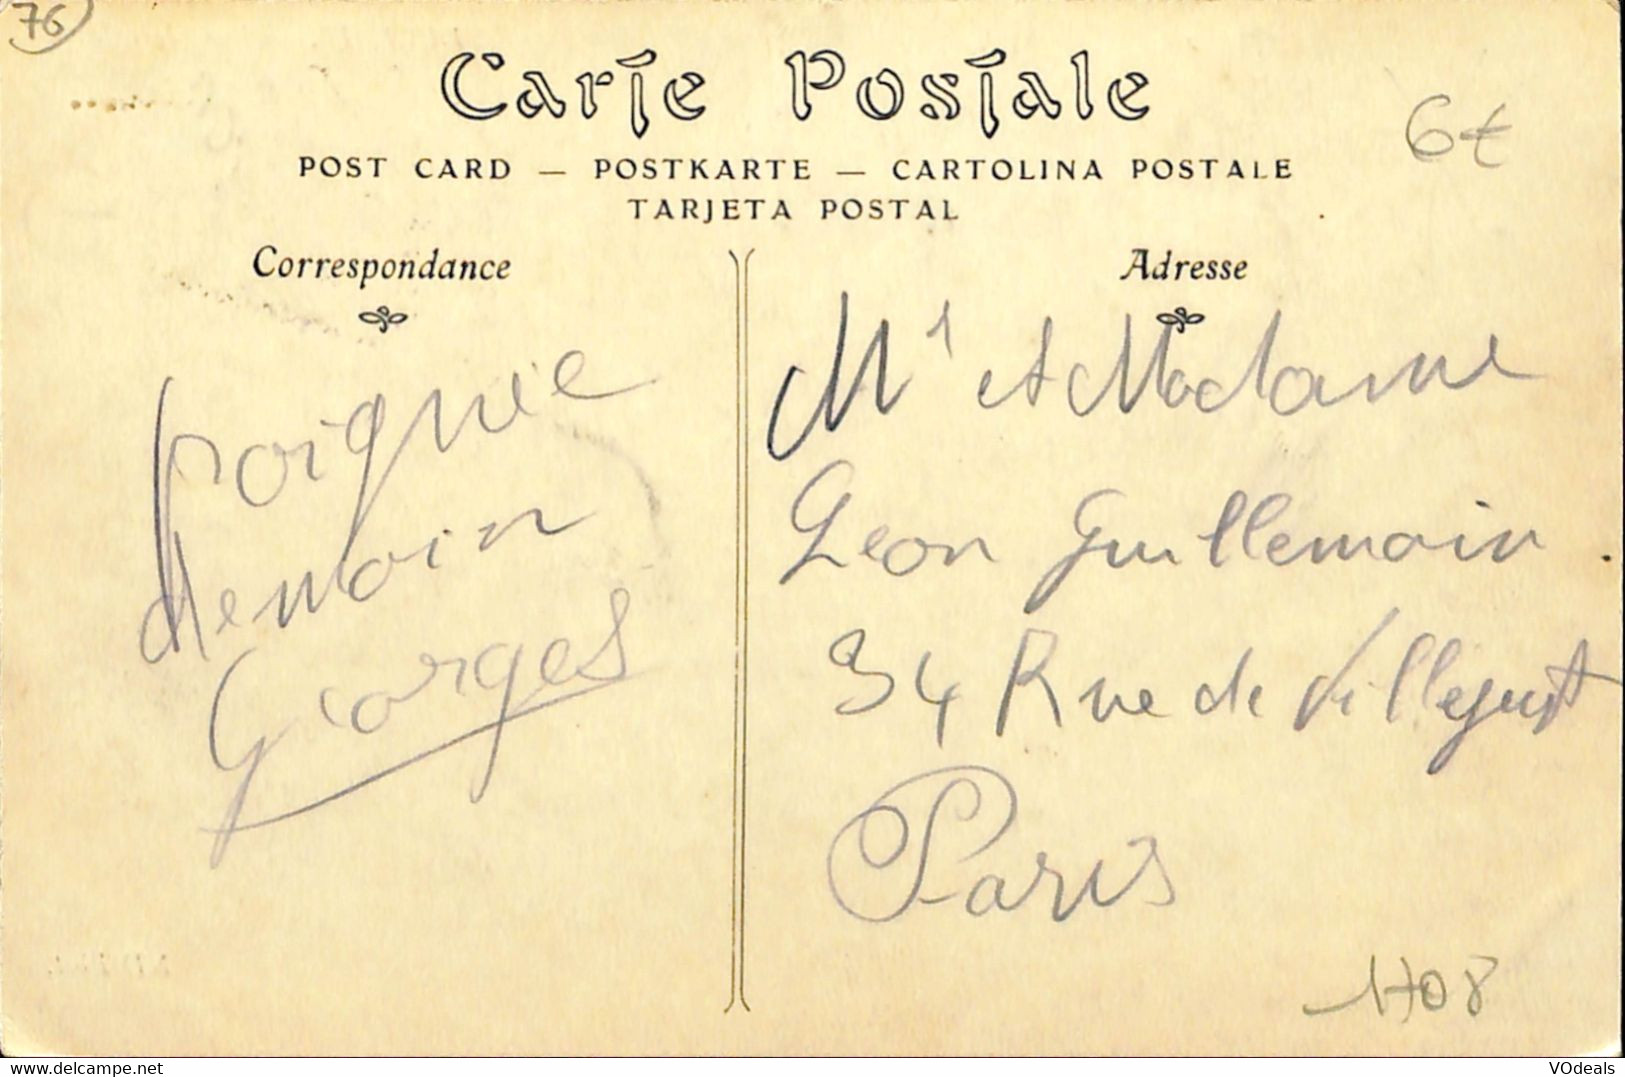 76
Carte Postale
6€
POST CARD — POSTKARTE — CARTOLINA POSTALE
TARJETA POSTAL
Correspondance
Poignee
demain
Georges
Adresse
Mr et Madame
Leon Guillemain
34 Rue de Villejust
Paris
1708
www.delcampe.net
VOdeals